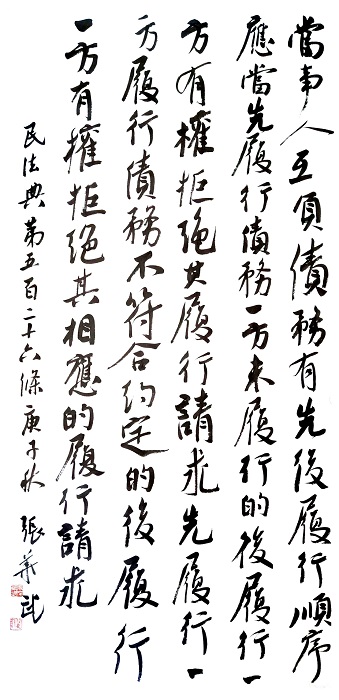 當事人互負債務有先後履行順序
應當先履行債務一方未履行的後履行一
方有權拒絕其履行請求先履行一
方履行債務不符合約定的後履行
一方有權拒絕其相應的履行請求
民法典第五百二十六條庚子秋 張華武